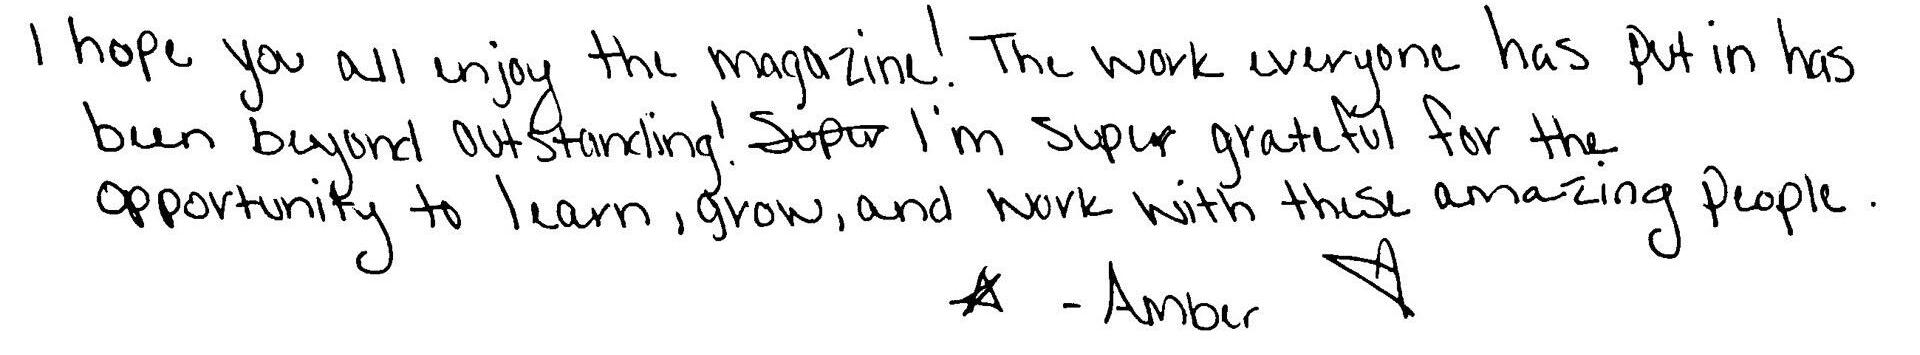 I hope you all enjoy the magazine! The work everyone has put in has
been beyond outstanding! Super I'm super grateful for the
opportunity to learn, grow, and work with these amazing people.
- Amber